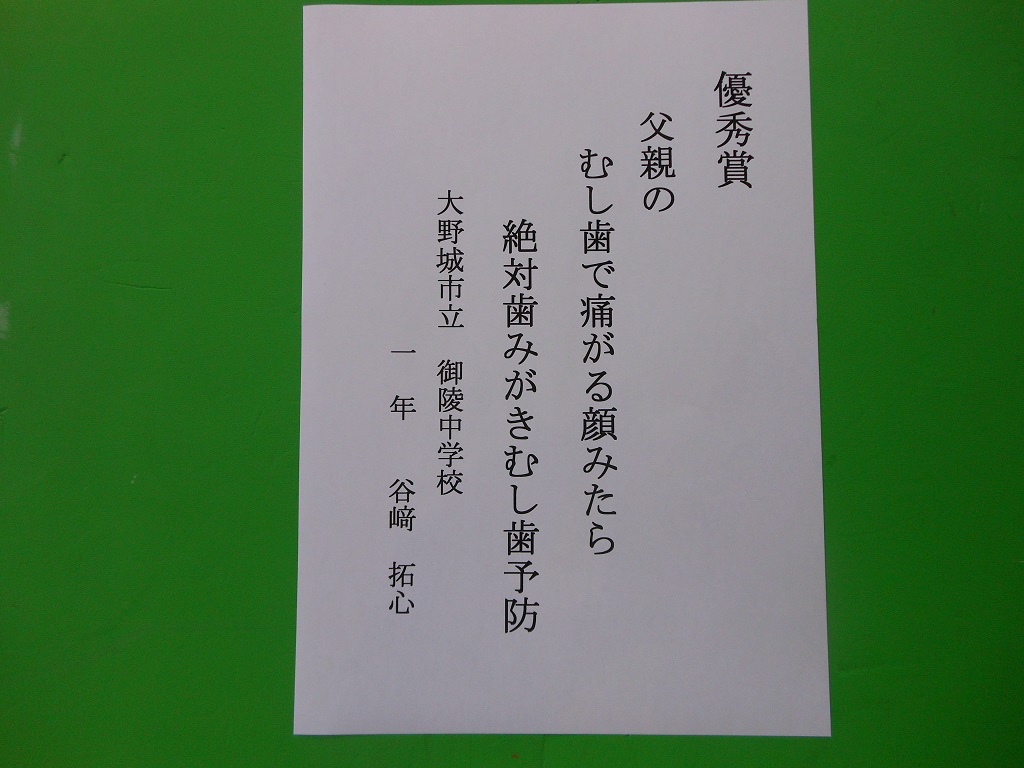 優秀賞
父親の
むし歯で痛がる顔みたら
絶対歯みがきむし歯予防
大野城市立　御陵中学校
一年　谷﨑　拓心